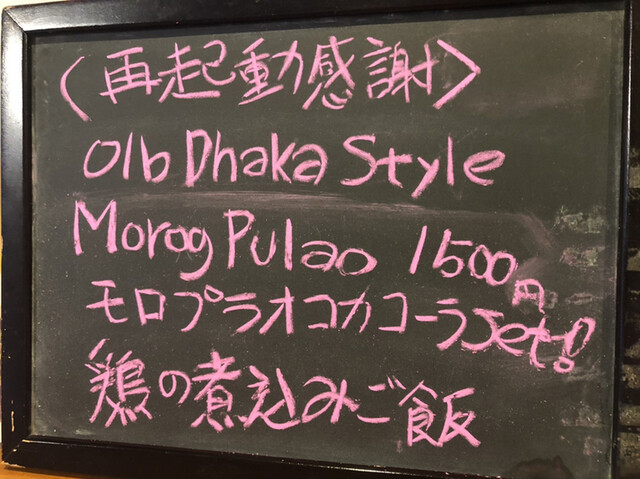 〈再起動感謝〉
Olb Dhaka Style
Morog Pulao 1500円
モロプラオコカコーラSet!
鶏の煮込みご飯